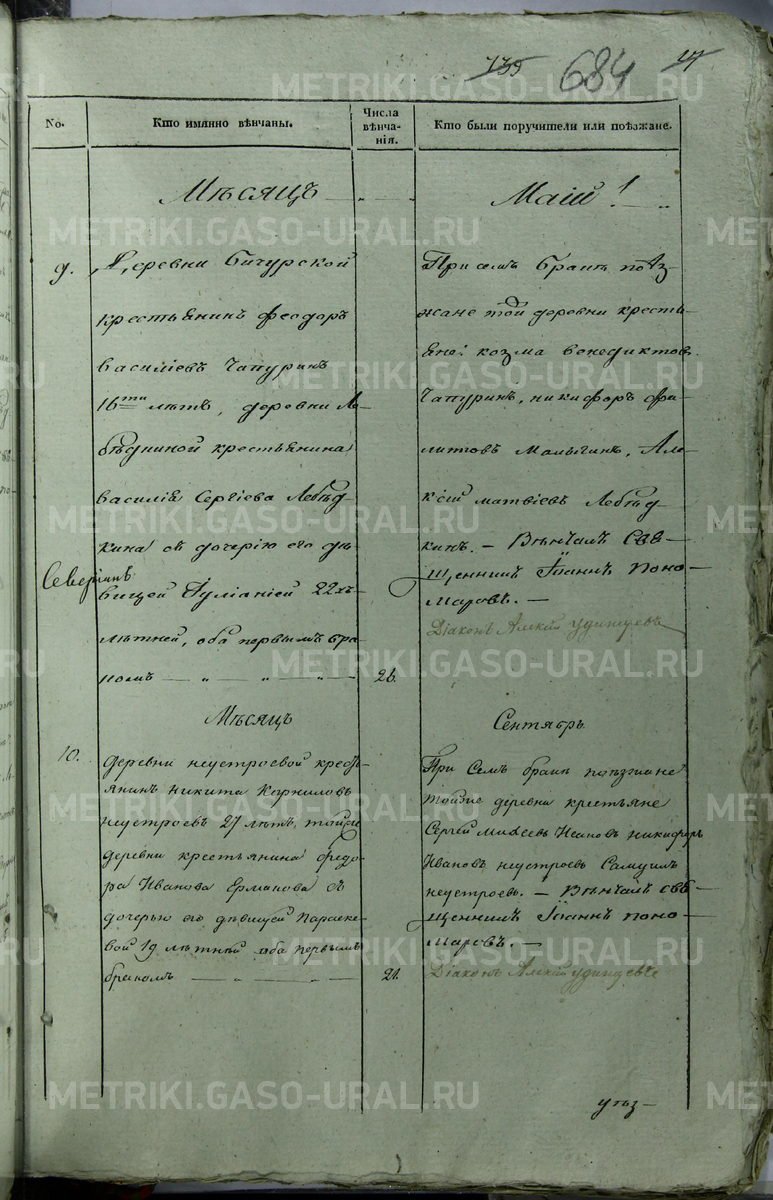 135 684 27
No.
Кто имянно вѣнчаны.
Числа вѣнча-нія.
Кто были поручители или поѣзжане.
Мѣсяцъ
Маій!
9.
Деревни Бичурской
крестьянинъ Феодоръ
Василіевъ Чапуринъ
16ти лѣтъ, деревни Ле-
бѣдкиной крестьянина
Василія Сергіева Лебѣд-
кина съ дочерію его дѣ-
вицей Іуліаніей 22хъ
лѣтней, оба первымъ бра-
комъ
26.
Северіинъ
При семъ бракѣ поѣз-
жане той деревни кресть-
яне: Козма Бенедиктов
Чапуринъ, Никифоръ Фи-
липовъ Малыгинъ, Але-
ксій Матвіевъ Лебѣд-
кинъ. — Вѣнчалъ Свя-
щенникъ Іоаннъ Поно-
маровъ. —
Діаконъ Алексій Удинцевъ
Мѣсяцъ
Сентябрь
10.
Деревни Неустроевой крест-
янинъ Никита Корниловъ
Неустроевъ 27 лѣтъ, тойже
деревни крестьянина Федо-
ра Иванова Ермакова съ
дочерью его дѣвицей Параске-
вой 19 лѣтней оба первымъ
бракомъ
21.
При Семъ бракѣ поѣзжане
тойже деревни крестьяне
Сергей Михеевъ Исаковъ Никифоръ
Ивановъ Неустроевъ Самуилъ
Неустроевъ. — Вѣнчалъ Свя-
щенникъ Іоаннъ Поно-
маровъ. —
Діаконъ Алексій Удинцевъ
METRIKI.GASO-URAL.RU